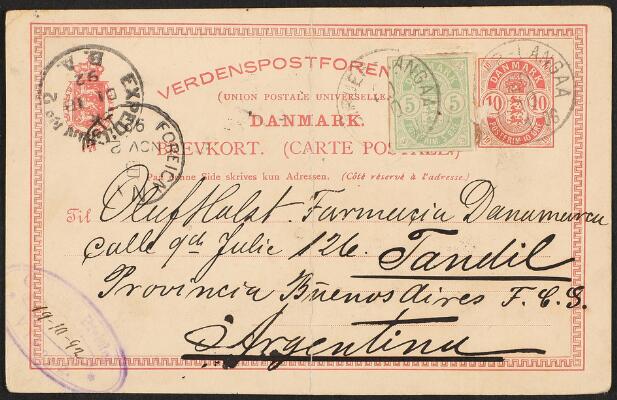 VERDENSPOSTFOREN
(UNION POSTALE UNIVERSELLE
DANMARK
BREVKORT. (CARTE POSTALE)
Paa denne Side skrives kun Adressen. (Côté réservé à l'adresse.)
5 5
DANMARK
10 10
POSTFRIM. 10 ØRE
LANGAA
LANGAA
EXPEDICION No 2
B. A.
92
FOREIGN
NOV 2
Til Oluf Holst. Farmacia Danamarca
Calle 9 de Julie 126. Tandil
Provincia Buenos Aires F. C. S.
Argentina
19-10-92